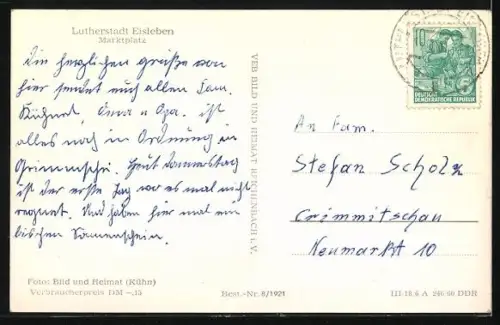 Lutherstadt Eisleben
Marktplatz
Die herzlichen grüße von
hier sendet euch allen Fam.
Kühnert, Oma u Opa. ist
alles noch in Ordnung in
Heut Donnerstag
ist der erste Tag wo es mal nicht
regnet. Und haben hier mal ein
bischen Sonnenschein.
Foto: Bild und Heimat (Kühn)
Verbraucherpreis DM -,15
VEB BILD UND HEIMAT REICHENBACH i. V.
Best.-Nr. 8/1921
10
DEUTSCHE
DEMOKRATISCHE REPUBLIK
An Fam.
Stefan Scholz
Crimmitschau
Neumarkt 10
III-18,6 A 246/60 DDR